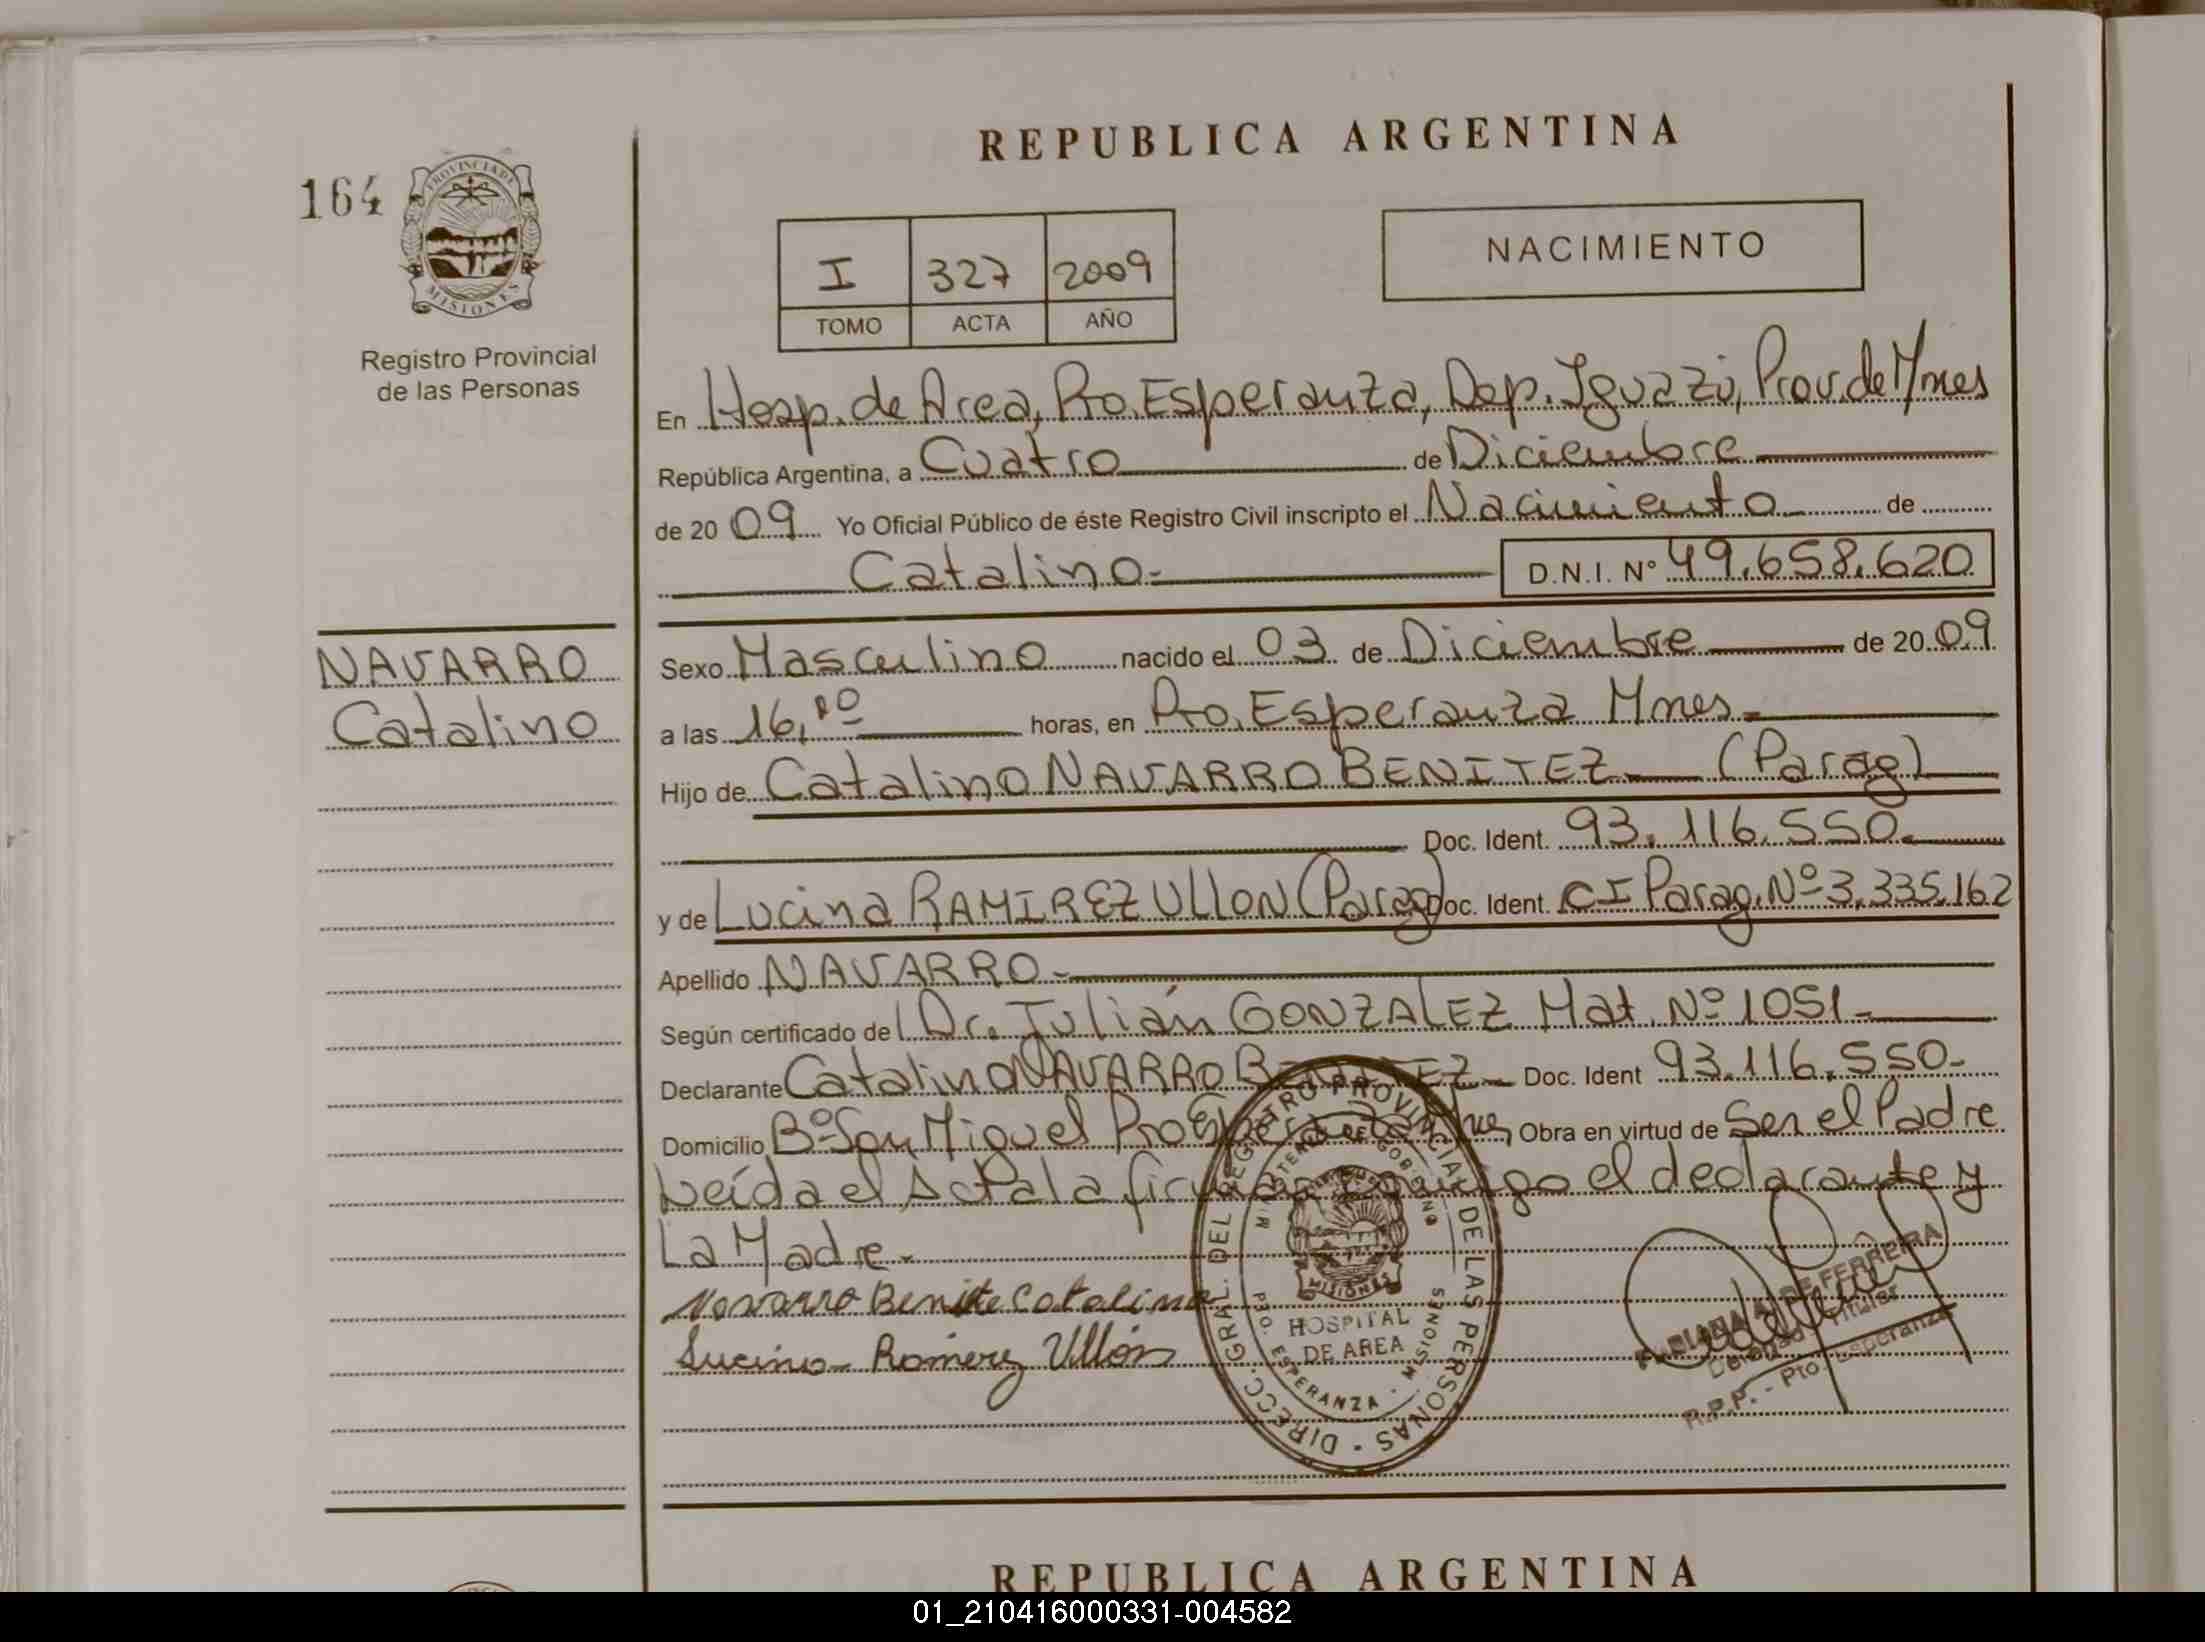 REPUBLICA ARGENTINA
164
PROVINCIA DE
MISIONES
Registro Provincial
de las Personas
I 327 2009
TOMO ACTA AÑO
NACIMIENTO
En Hosp. de Area, Pto. Esperanza, Dep. Iguazú, Prov. de Mnes
República Argentina, a Cuatro de Diciembre
de 2009 Yo Oficial Público de éste Registro Civil inscripto el Nacimiento de
Catalino.- D.N.I. Nº 49.658.620
NAVARRO
Catalino
Sexo Masculino nacido el 03 de Diciembre de 2009
a las 16,10 horas, en Pto. Esperanza Mnes.-
Hijo de Catalino NAVARRO BENITEZ (Parag)
Doc. Ident. 93.116.550.
y de Lucina RAMIREZ ULLON (Parag) Doc. Ident. CI Parag. Nº 3.335.162
Apellido NAVARRO.-
Según certificado del Dr. Julián GONZALEZ Mat. Nº 1051.-
Declarante Catalino NAVARRO BENITEZ Doc. Ident 93.116.550-
Domicilio Bº San Miguel Pto Esperanza Mnes, Obra en virtud de Ser el Padre
Leída el Acta la firman conmigo el declarante y
La Madre.-
Navarro Benite Catalino
Lucina Ramirez Ullón
DIRECC. GRAL. DEL REGISTRO PROVINCIAL DE LAS PERSONAS
MINISTERIO DE GOBIERNO
MISIONES
HOSPITAL
DE AREA
PTO. ESPERANZA - MISIONES
FABIANA A. DE FERREIRA
Delegada Titular
R.P.P. - Pto. Esperanza
REPUBLICA ARGENTINA
01_210416000331-004582